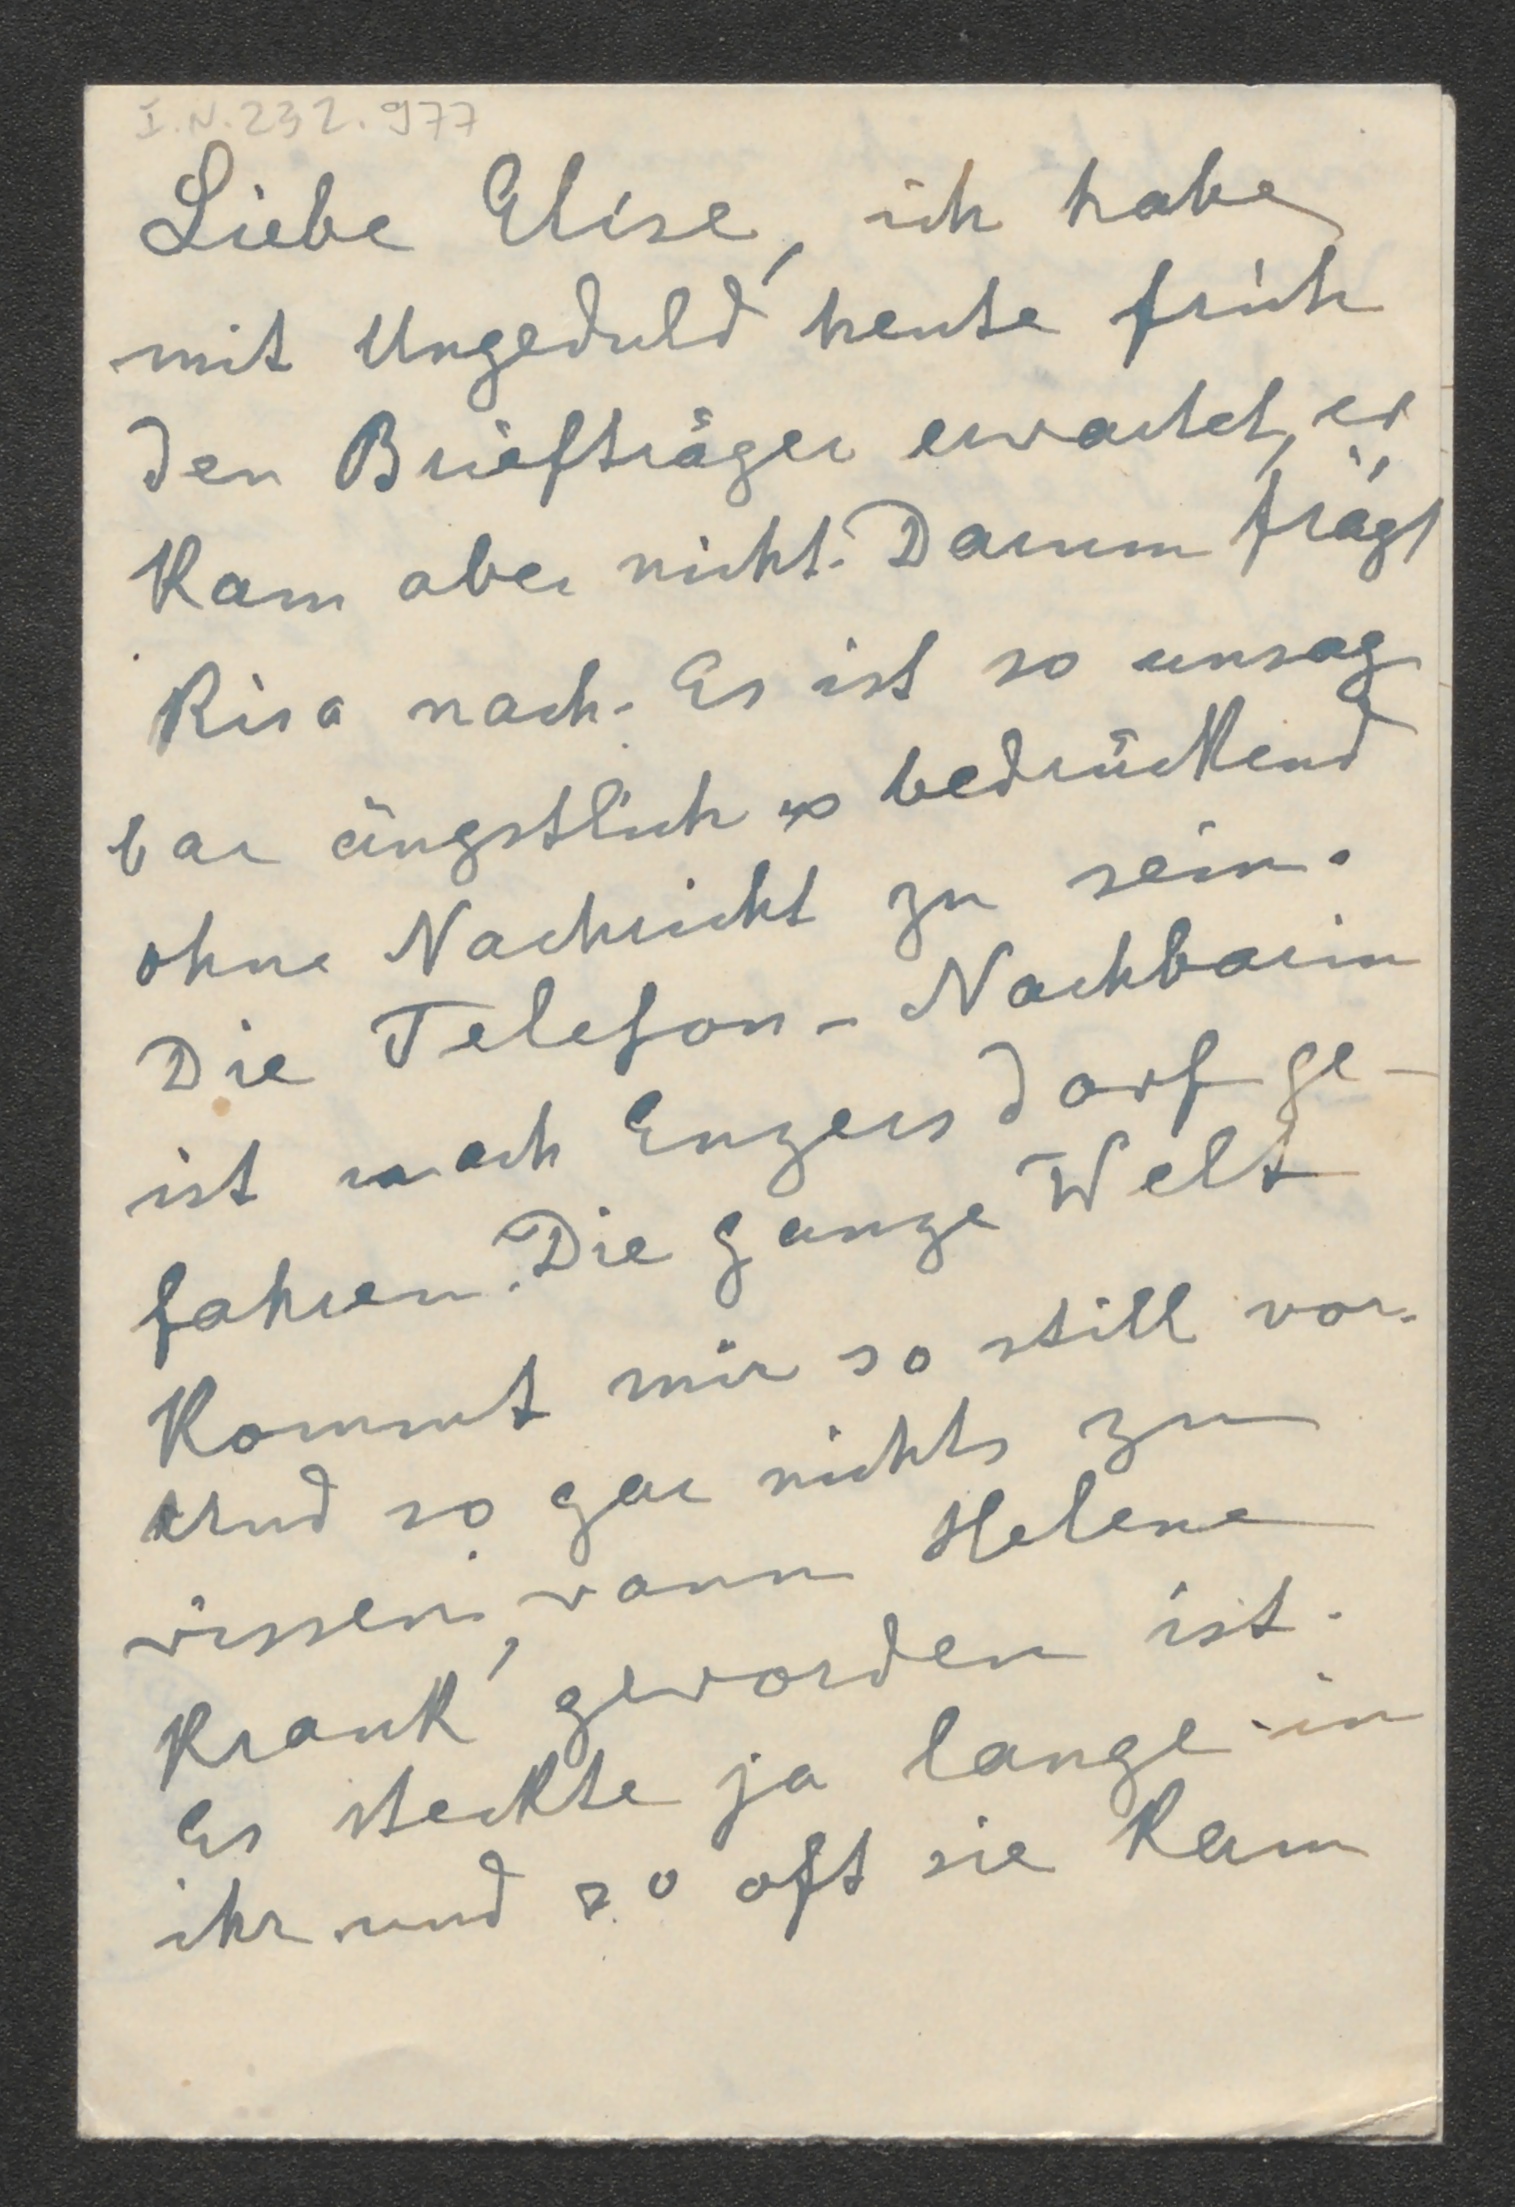 I.N. 232.977
Liebe Elise, ich habe
mit Ungeduld heute früh
den Briefträger erwartet, er
kam aber nicht. Darum frägt
Risa nach. Es ist so unsag
bar ängstlich u bedrückend
ohne Nachricht zu sein.
Die Telefon-Nachbarin
ist nach Enzersdorf ge-
fahren. Die ganze Welt
kommt mir so still vor.
Und so gar nichts zu
wissen, wann Helene
krank geworden ist.
Es steckte ja lange in
ihr und so oft sie kam